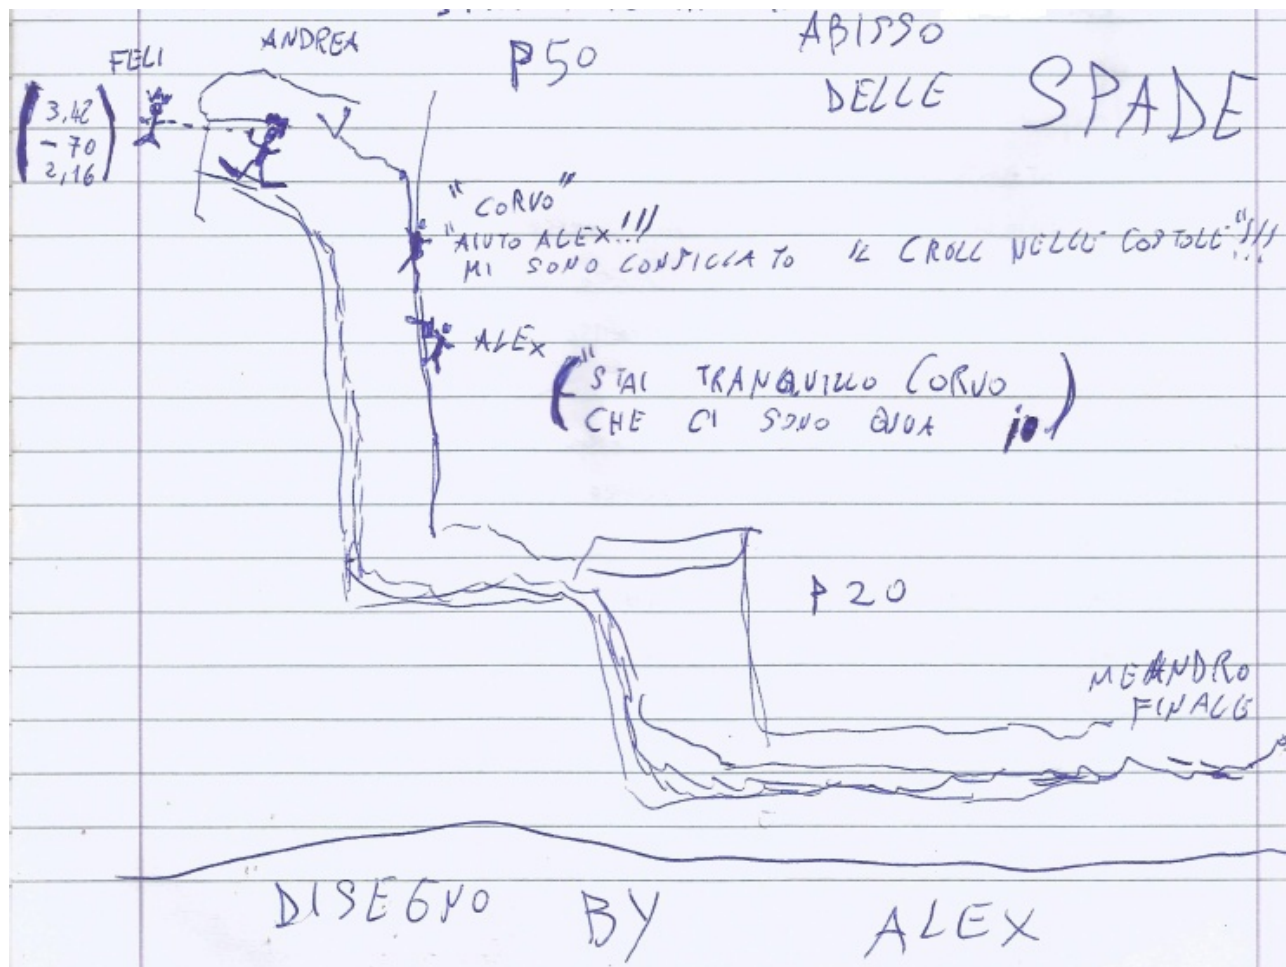 FELI
ANDREA
P50
ABISSO
DELLE SPADE
3,42
- 70
2,16
"CORVO"
"AIUTO ALEX!!!
MI SONO CONFICCATO IL CROLL NELLE COSTOLE"!!!
ALEX
("STAI TRANQUILLO CORVO
CHE CI SONO QUUA io)
P 20
MEANDRO
FINALE
DISEGNO BY ALEX